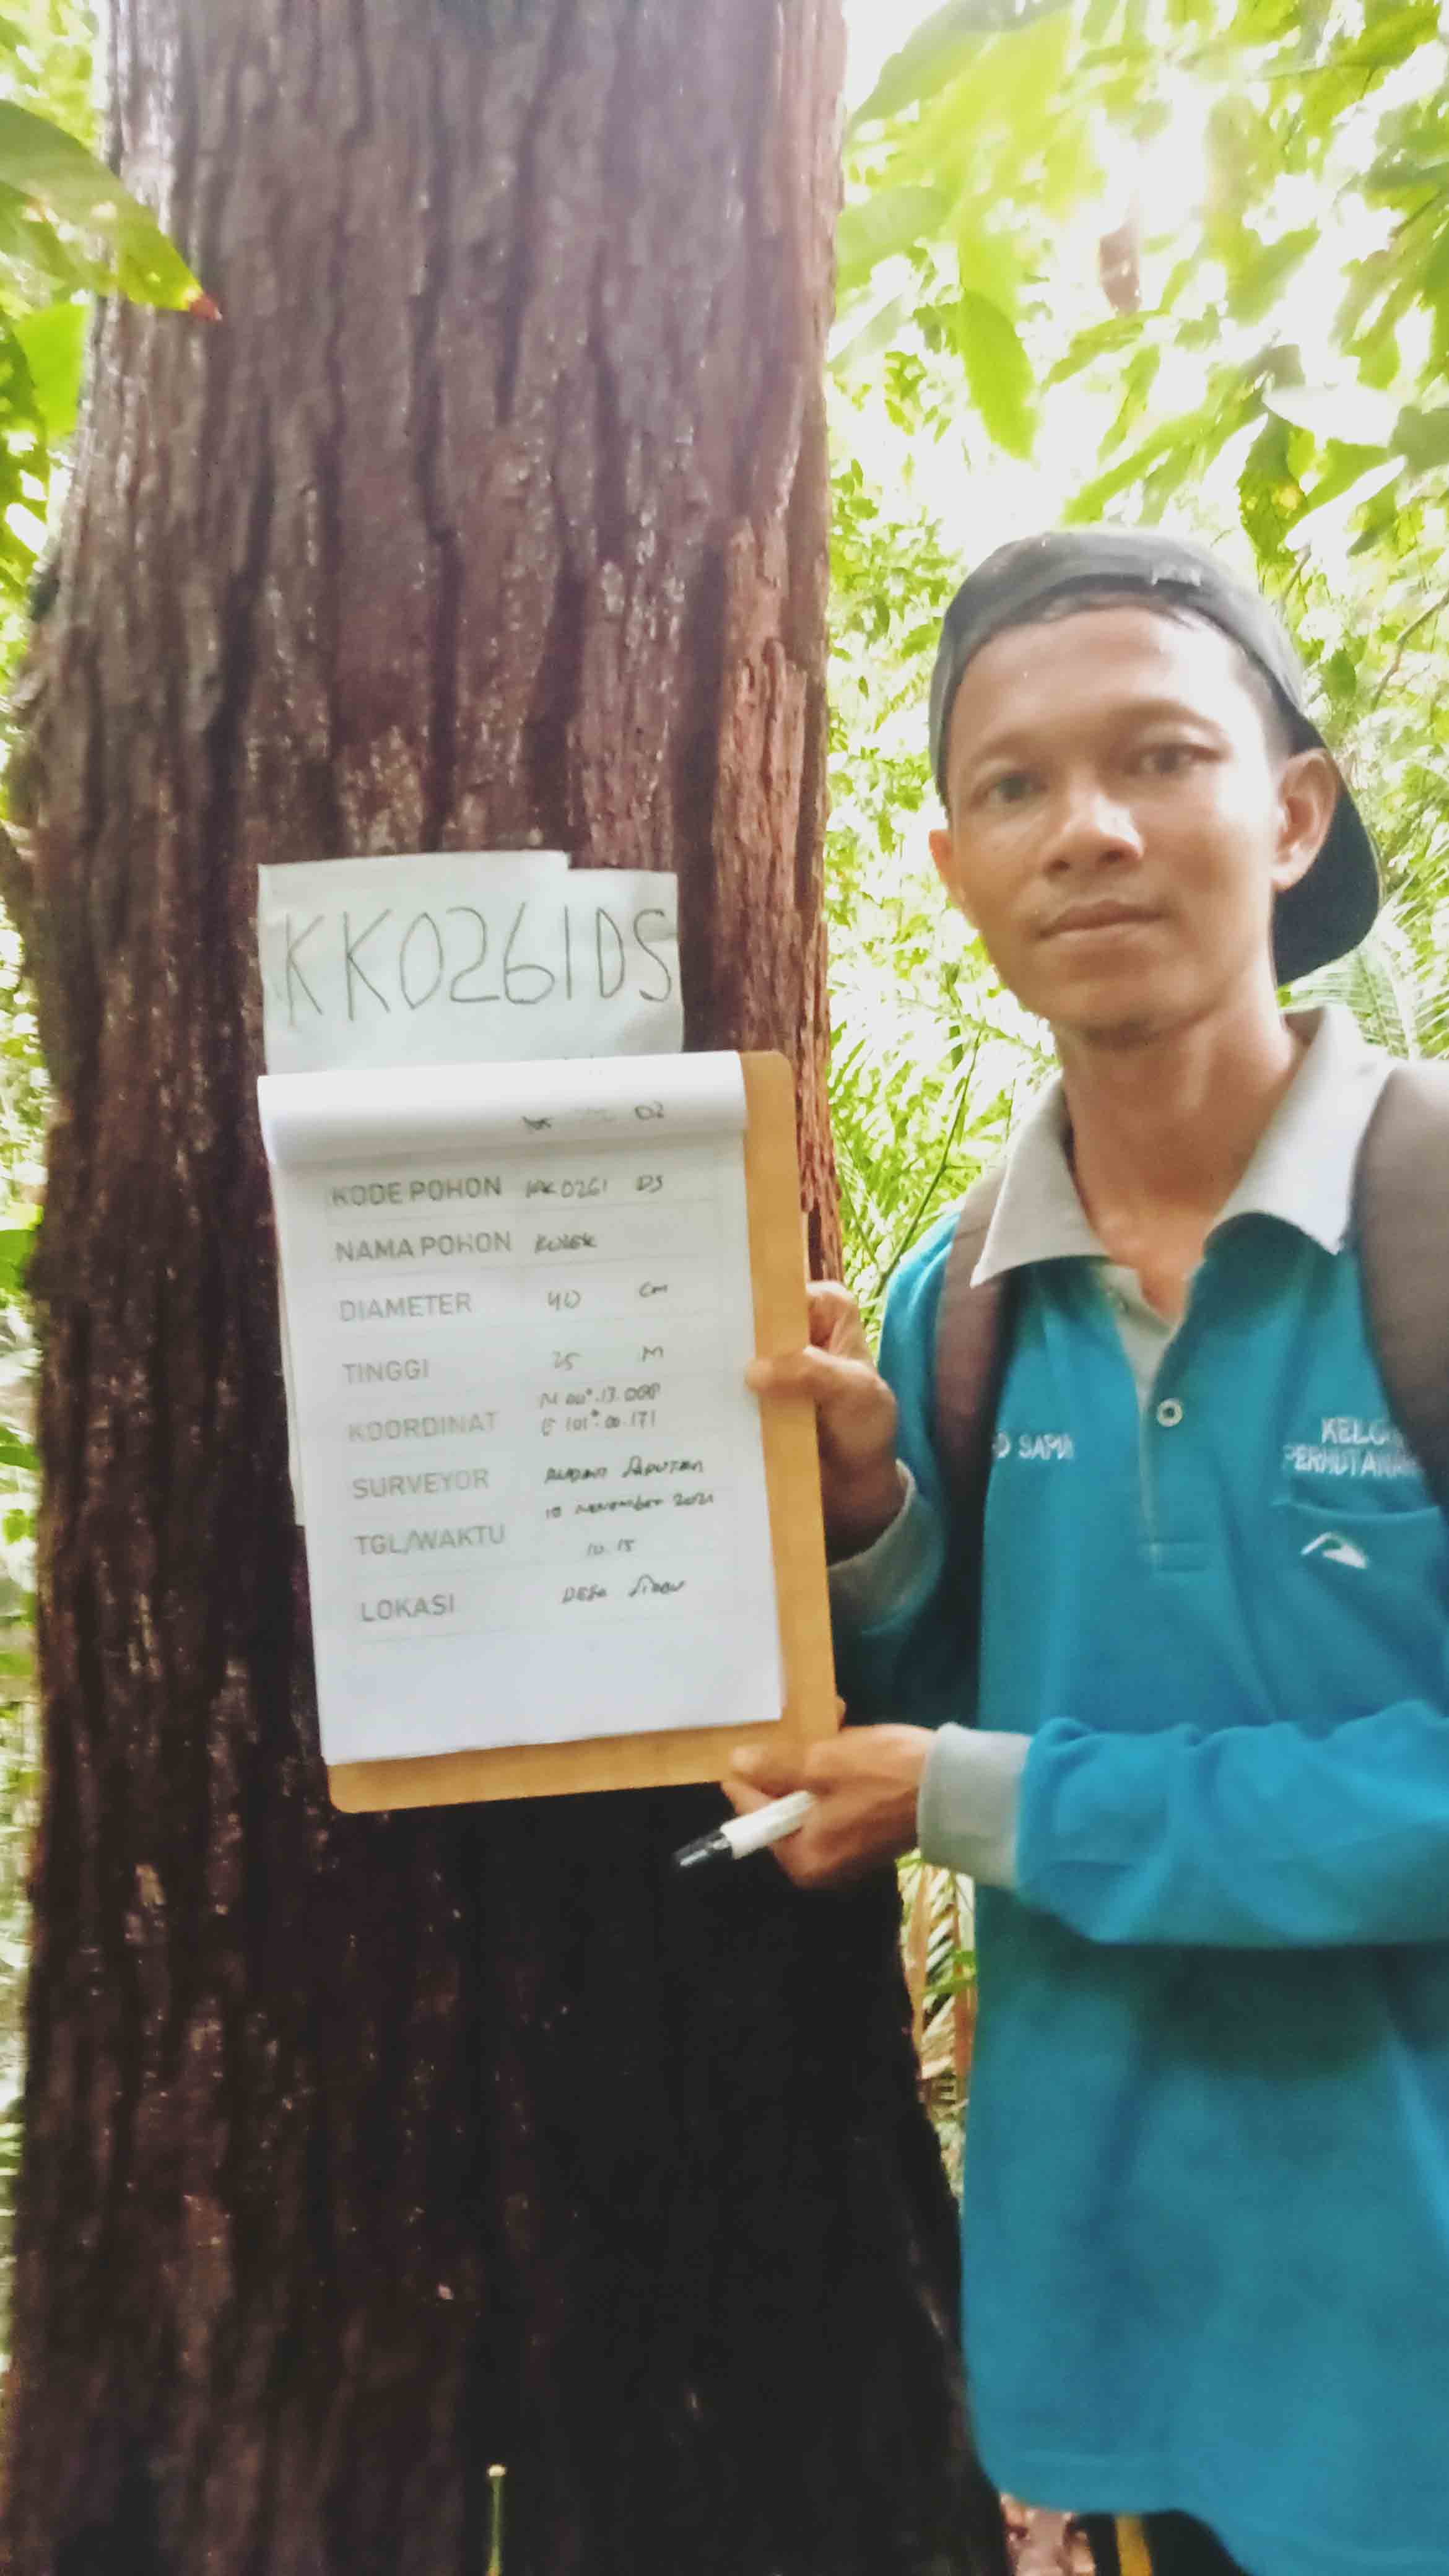 KK0261DS
D2
KODE POHON KK0261 DS
NAMA POHON KULEK
DIAMETER 40 cm
TINGGI 25 M
KOORDINAT N 00°.13.
E 101°.00.171
SURVEYOR SAPUTRA
TGL/WAKTU 10 November 2021
10.15
LOKASI DESA